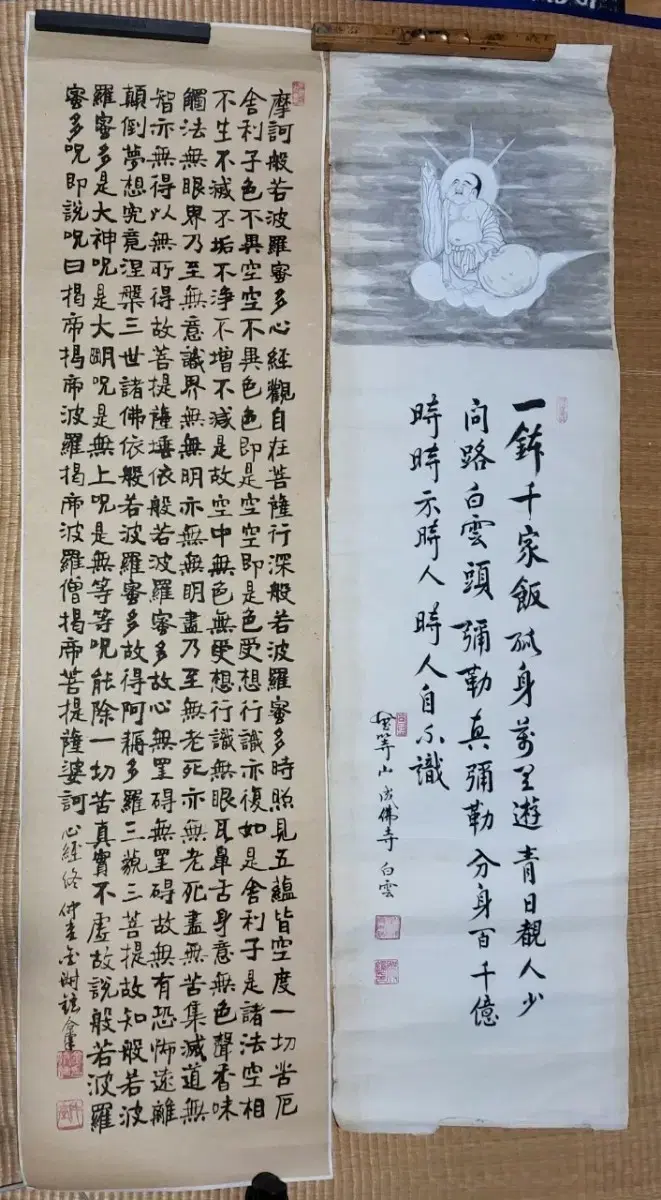 一鉢千家飯孤身萬里遊青目覩人少
問路白雲頭彌勒真彌勒分身百千億
時時示時人時人自不識
無等山成佛寺白雲
摩訶般若波羅蜜多心經觀自在菩薩行深般若波羅蜜多時照見五蘊皆空度一切苦厄
舍利子色不異空空不異色色即是空空即是色受想行識亦復如是舍利子是諸法空相
不生不滅不垢不淨不增不減是故空中無色無受想行識無眼耳鼻舌身意無色聲香味
觸法無眼界乃至無意識界無無明亦無無明盡乃至無老死亦無老死盡無苦集滅道無
智亦無得以無所得故菩提薩埵依般若波羅蜜多故心無罣碍無罣碍故無有恐怖遠離
顛倒夢想究竟涅槃三世諸佛依般若波羅蜜多故得阿耨多羅三藐三菩提故知般若波
羅蜜多是大神呪是大明呪是無上呪是無等等呪能除一切苦真實不虛故說般若波羅
蜜多呪即說呪曰揭帝揭帝波羅揭帝波羅僧揭帝菩提薩婆訶心經終